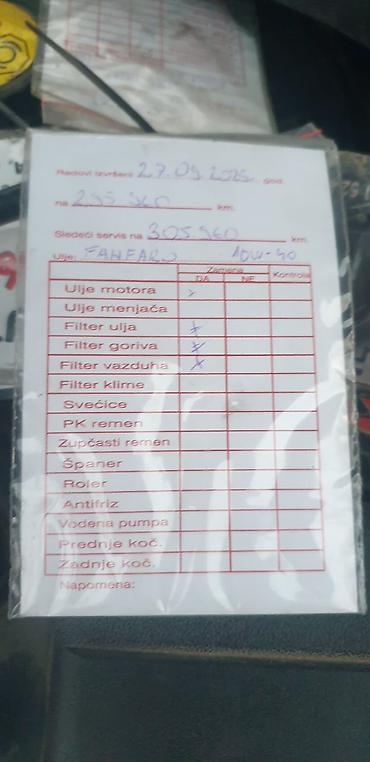 Radovi izvršeni 27.09.2025. god.
na 295 560 km.
Sledeći servis na 305 560 km.
Ulje: FANFARO 10W-40
Zamena Kontrola
DA NE
Ulje motora
Ulje menjača
Filter ulja
Filter goriva
Filter vazduha
Filter klime
Svećice
PK remen
Zupčasti remen
Španer
Roler
Antifriz
Vodena pumpa
Prednje koč.
Zadnje koč.
Napomena: